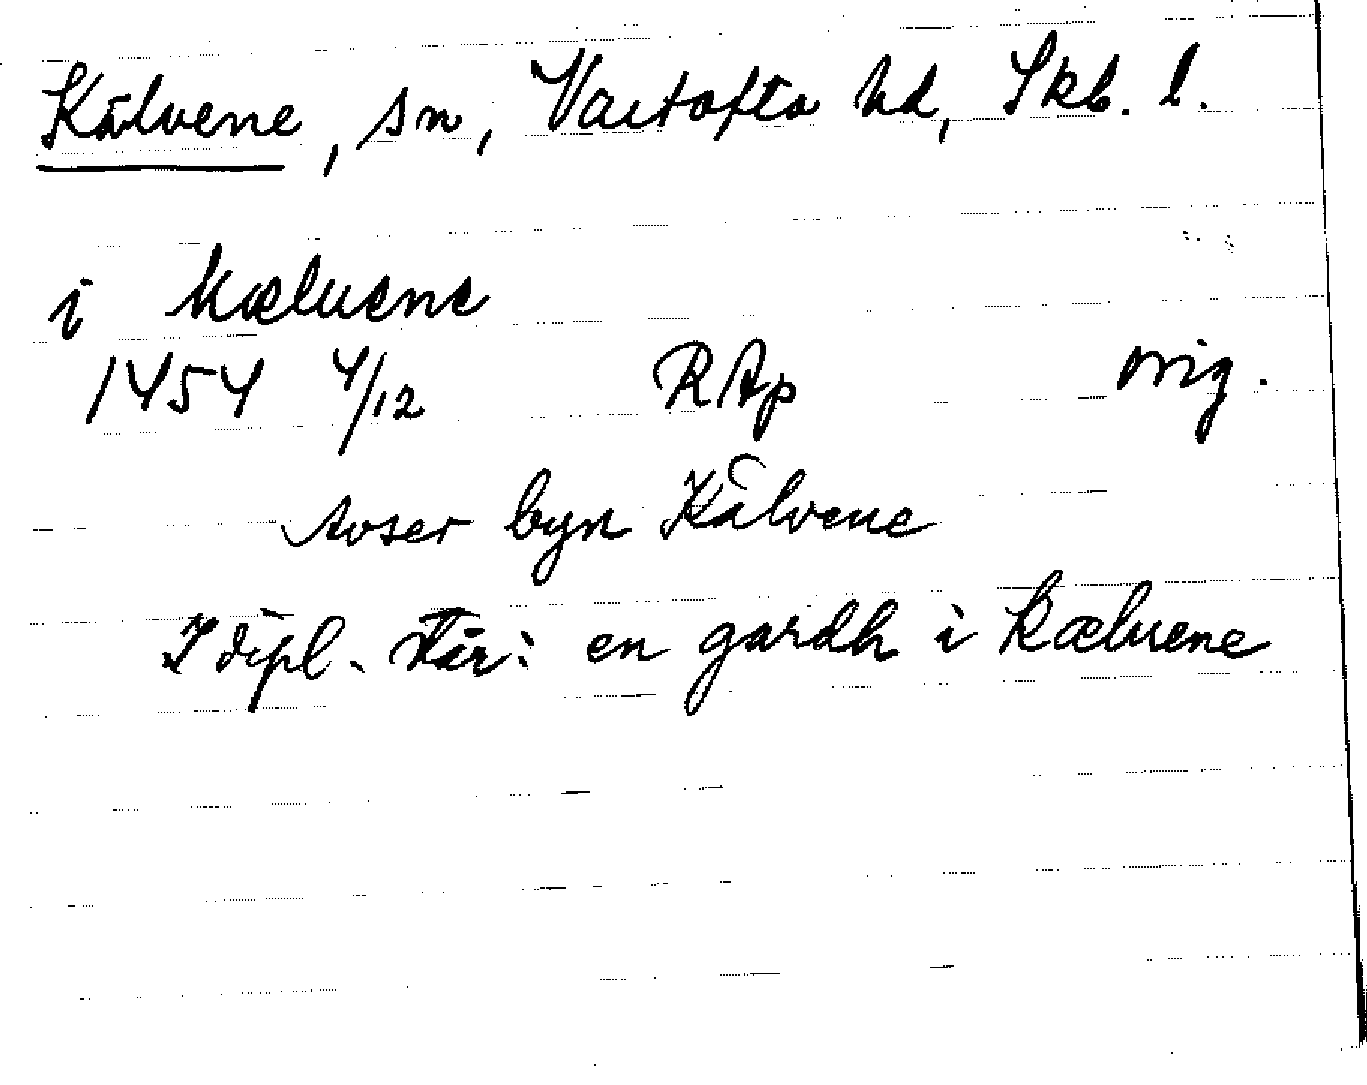 Kålvene, sn, Vartofta hd, Skb. l.
i kæluene
1454 4/12 RAp orig.
Avser byn Kålvene
I dipl. står: en gardh i kæluene